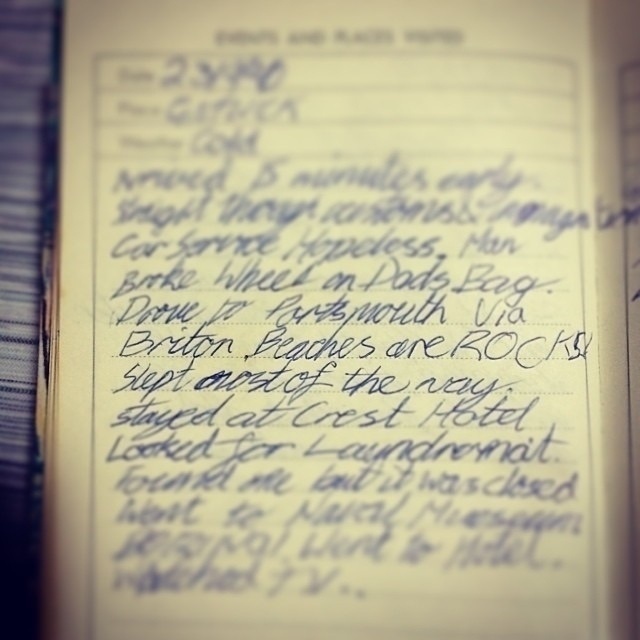 EVENTS AND PLACES VISITED
Date
Place GATWICK
Weather Cold
Arrived 15 minutes early.
through customs &
Car Service Hopeless. Man
Broke Wheel on Dads Bag.
Drove to Portsmouth Via
Briton, Beaches are ROCKS!
Slept most of the way.
stayed at Crest Hotel
Looked for Laundromat.
Found one but it was closed
Went to Naval Museum
BORING! Went to Hotel.
Watched T.V..